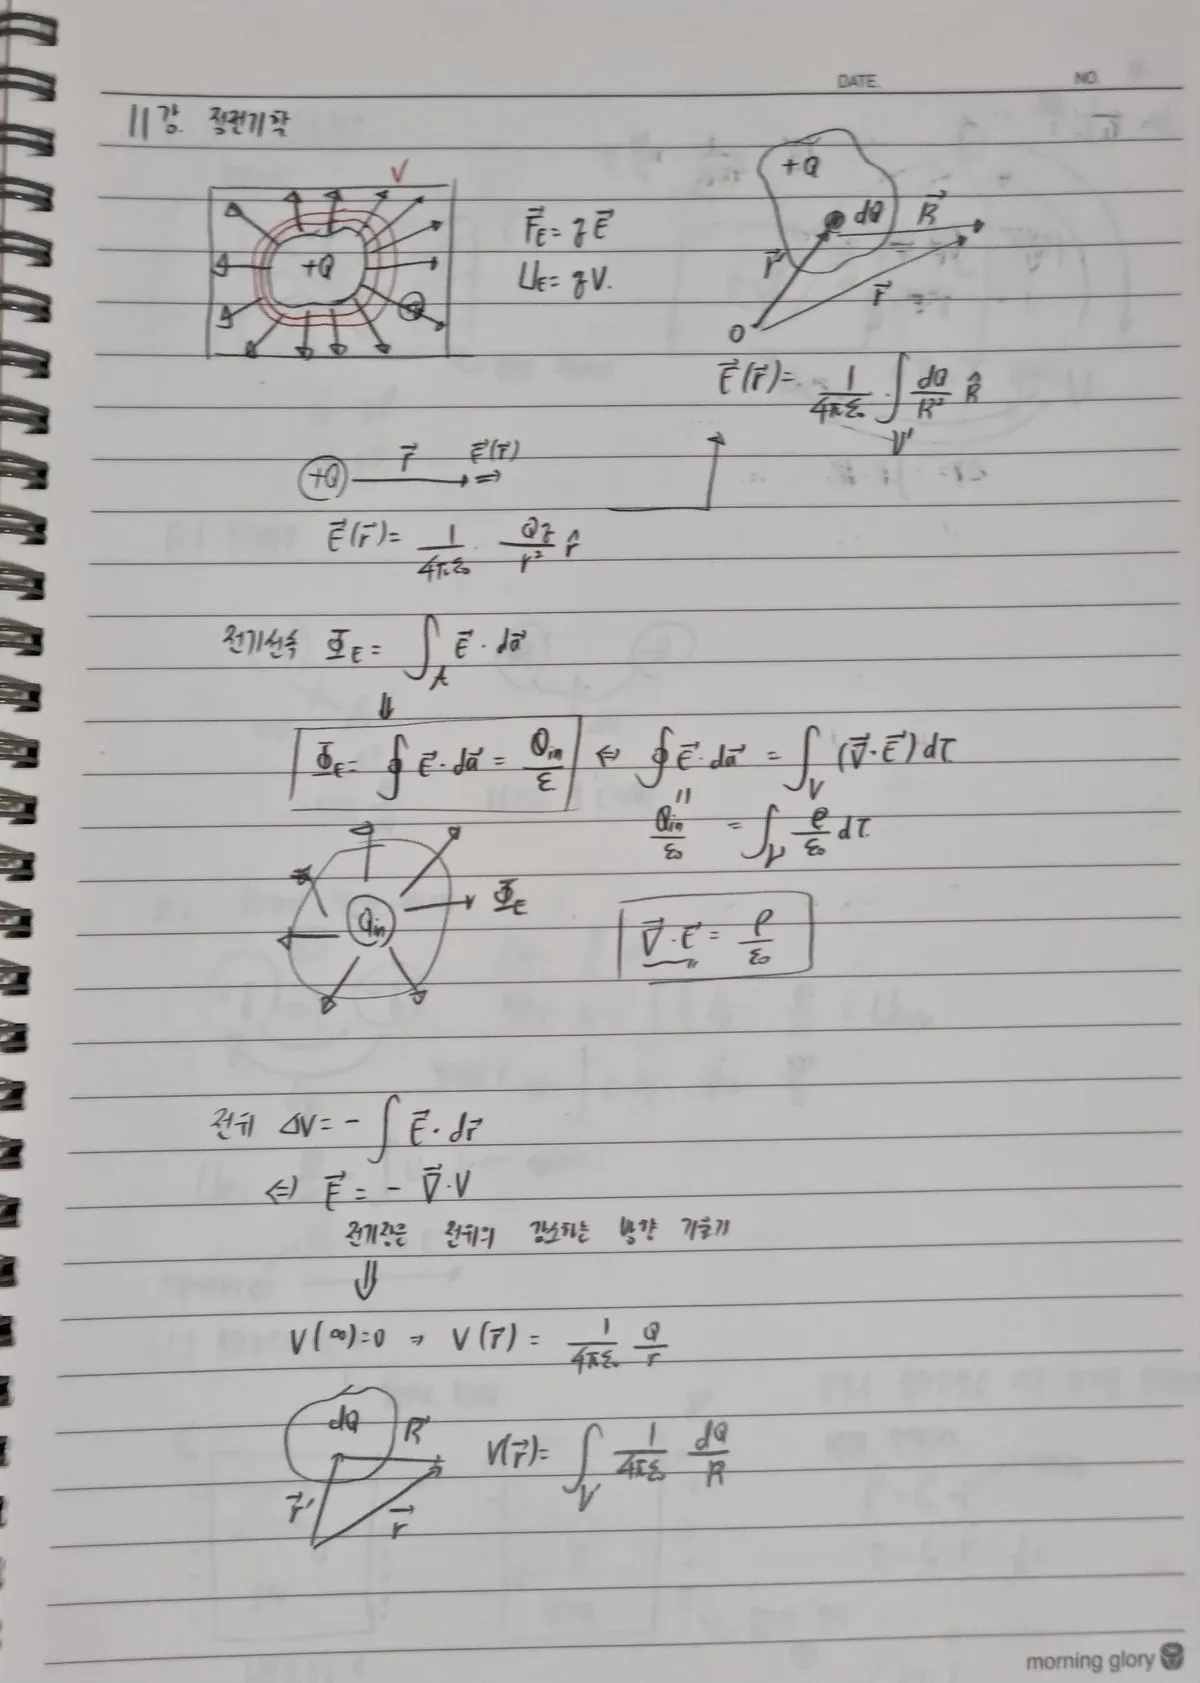 DATE. NO.
11강. 정전기학
V
+Q
F⃗_E = qE⃗
U_E = qV.
+Q
dQ R⃗
r⃗'
r⃗
O
E⃗(r⃗) = 1/4πε₀ · ∫_V' dQ/R² R̂
+Q r⃗ E⃗(r⃗) ⇒
E⃗(r⃗) = 1/4πε₀ · Qq/r² r̂
전기선속 Φ_E = ∫_A E⃗ · da⃗
⇓
Φ_E = ∮ E⃗ · da⃗ = Q_in/ε ⇔ ∮ E⃗ · da⃗ = ∫_V (∇⃗ · E⃗) dτ
〃
Q_in/ε₀ = ∫_V ρ/ε₀ dτ.
Q_in Φ_E
∇⃗ · E⃗ = ρ/ε₀
전위 ΔV = - ∫ E⃗ · dr⃗
⇔ E⃗ = - ∇⃗ · V
전기장은 전위의 감소하는 방향 기울기
⇓
V(∞)=0 ⇒ V(r⃗) = 1/4πε₀ Q/r
dQ R⃗
r⃗' r⃗
V(r⃗) = ∫_V' 1/4πε₀ dQ/R
morning glory